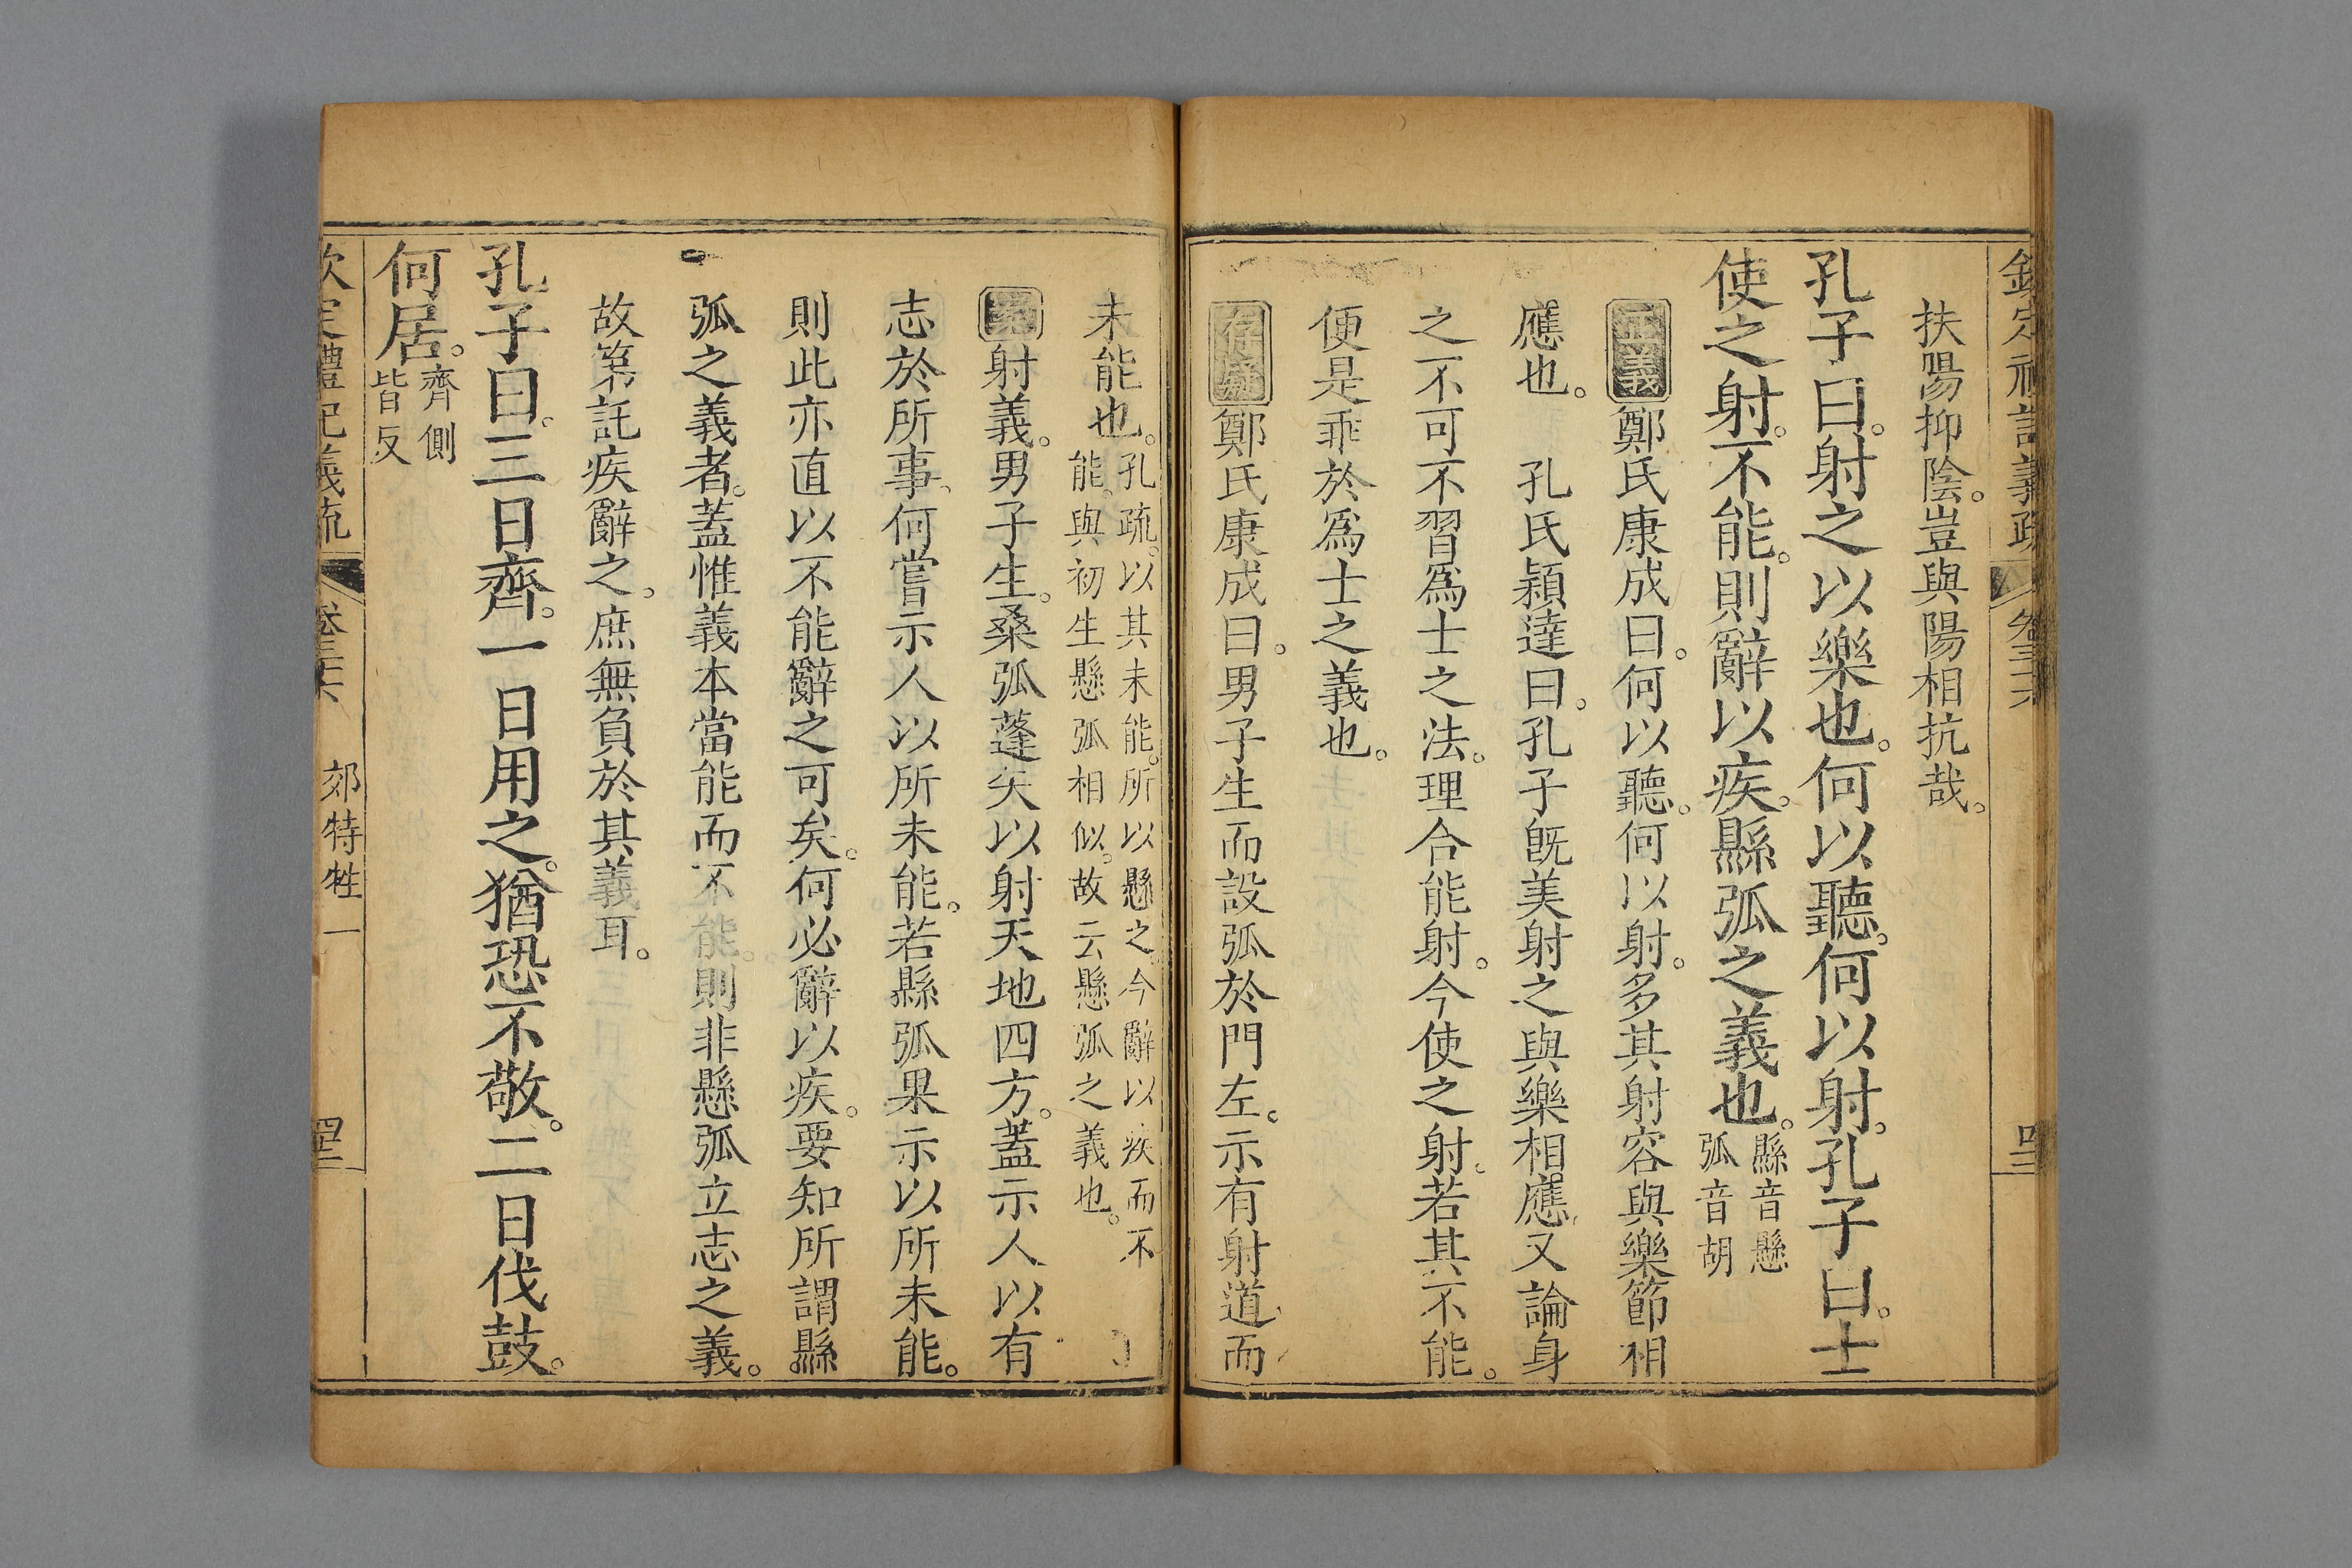 欽定禮記義疏 卷三十六 四三
扶陽抑陰。豈與陽相抗哉。
孔子曰。射之以樂也。何以聽。何以射。孔子曰。士
使之射。不能。則辭以疾。縣弧之義也。縣音懸
弧音胡
正義鄭氏康成曰。何以聽。何以射。多其射容與樂節相
應也。 孔氏穎達曰。孔子既美射之與樂相應。又論身
之不可不習爲士之法。理合能射。今使之射。若其不能。
便是乖於爲士之義也。
存疑鄭氏康成曰。男子生而設弧於門左。示有射道而
未能也。孔疏。以其未能。所以懸之。今辭以疾而不
能。與初生懸弧相似。故云懸弧之義也。
案射義。男子生。桑弧蓬矢以射天地四方。蓋示人以有
志於所事。何嘗示人以所未能。若縣弧果示以所未能。
則此亦直以不能辭之可矣。何必辭以疾。要知所謂縣
弧之義者。蓋惟義本當能而不能。則非懸弧立志之義。
故第託疾辭之。庶無負於其義耳。
孔子曰。三日齊。一日用之。猶恐不敬。二日伐鼓。
何居。齊側
皆反
欽定禮記義疏 卷三十六 郊特牲一 四三